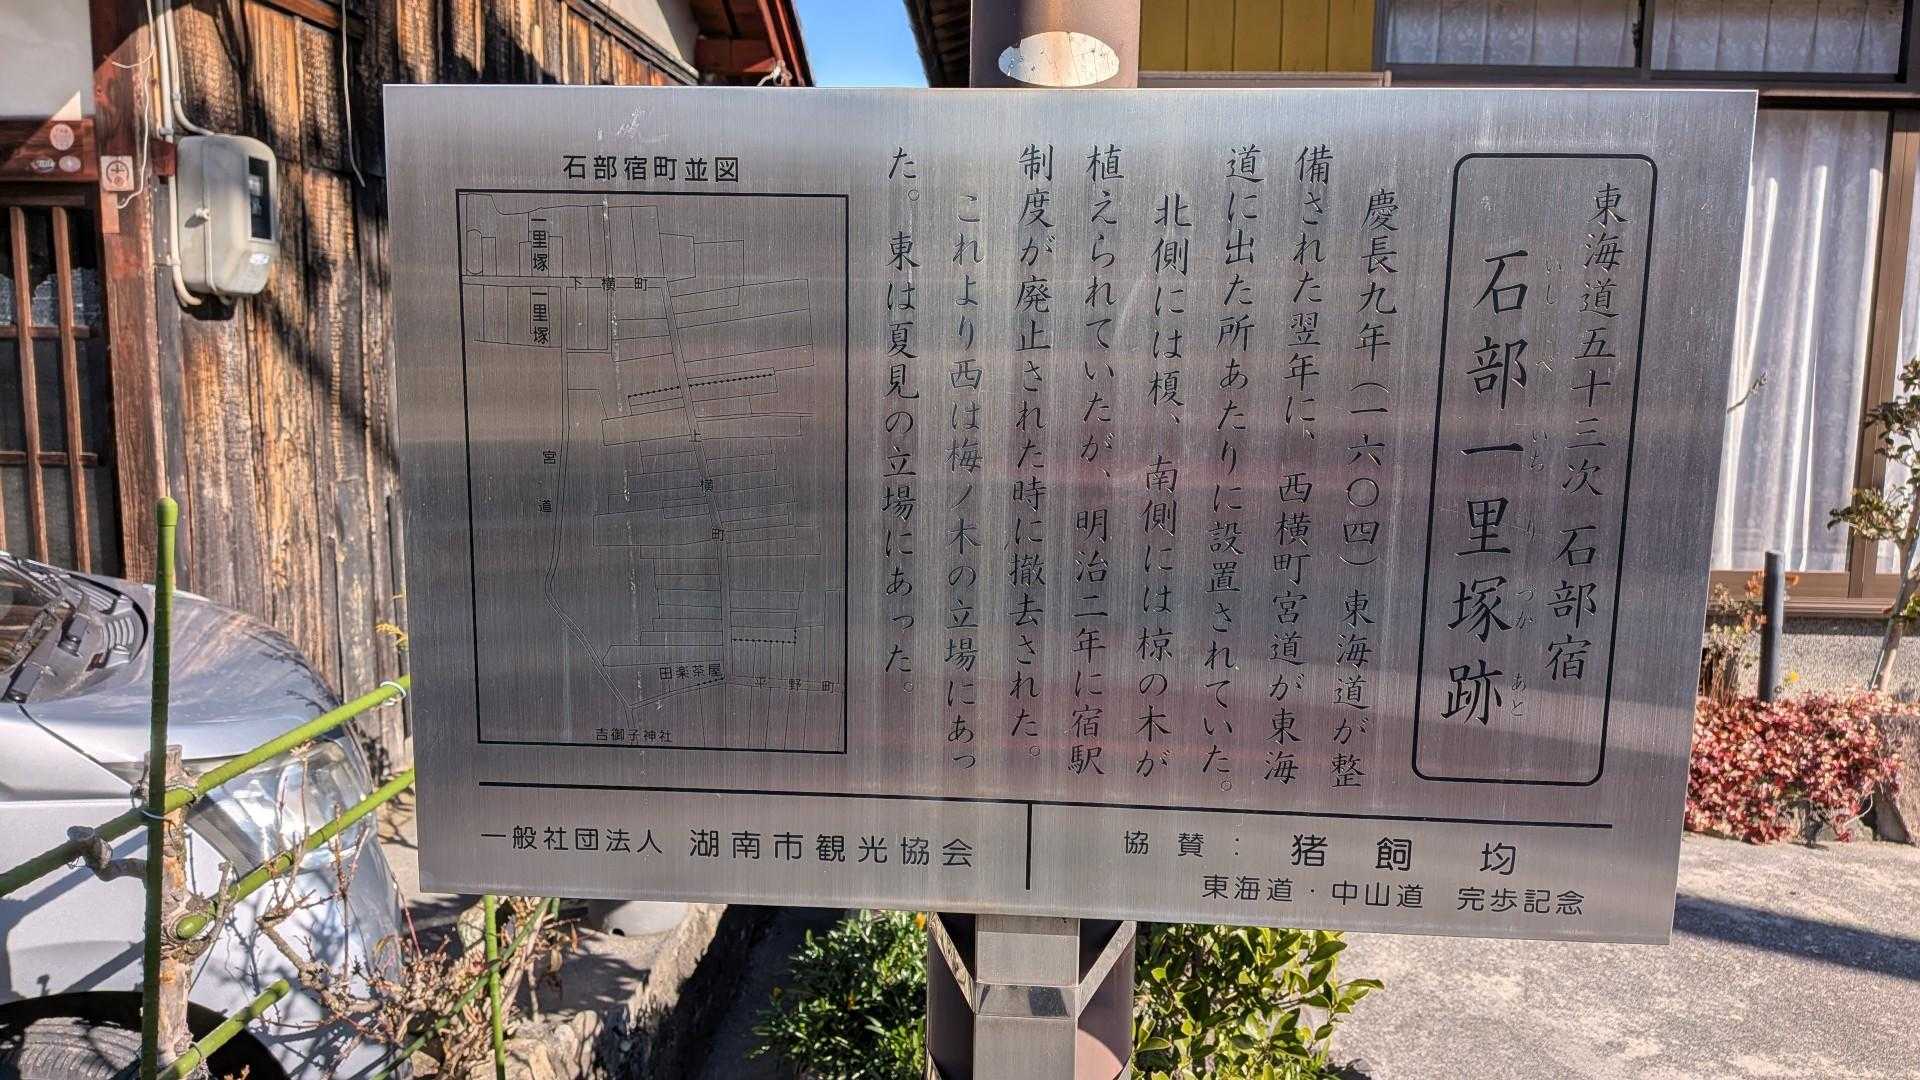 東海道五十三次 石部宿
石部一里塚跡
いしべ いちりつか あと
慶長九年（一六〇四）東海道が整
備された翌年に、西横町宮道が東海
道に出た所あたりに設置されていた。
北側には榎、南側には椋の木が
植えられていたが、明治二年に宿駅
制度が廃止された時に撤去された。
これより西は梅ノ木の立場にあっ
た。東は夏見の立場にあった。
石部宿町並図
一里塚
下横町
一里塚
上横町
宮道
田楽茶屋
平野町
吉御子神社
一般社団法人 湖南市観光協会
協賛：猪飼 均
東海道・中山道 完歩記念